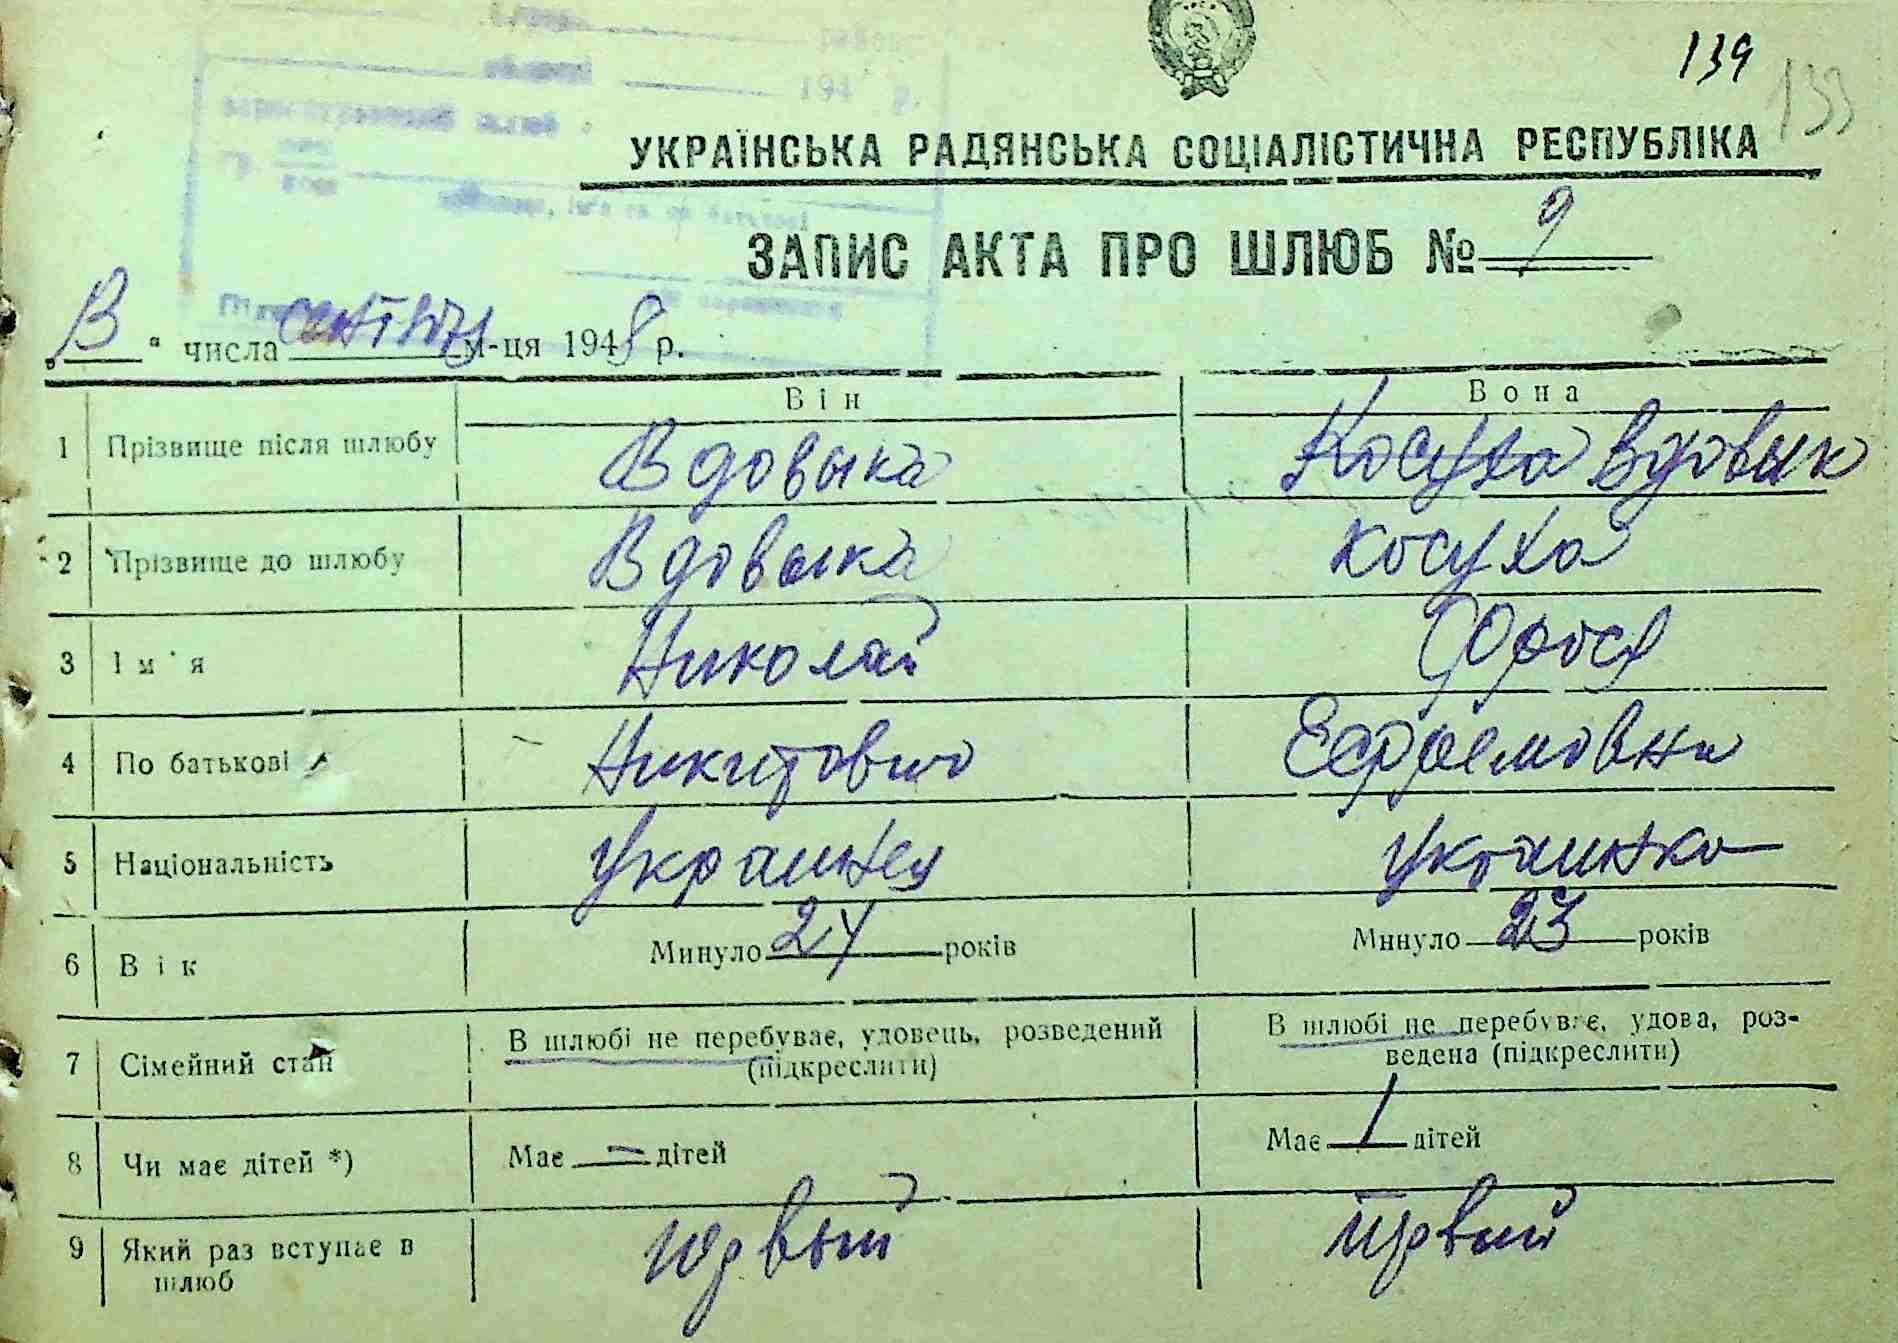 139
133
194 р.
УКРАЇНСЬКА РАДЯНСЬКА СОЦІАЛІСТИЧНА РЕСПУБЛІКА
ЗАПИС АКТА ПРО ШЛЮБ № 9
числа м-ця 1948 р.
Він Вона
1 Прізвище після шлюбу Вдовыка Косуха Вдовык
2 Прізвище до шлюбу Вдовыка Косуха
3 Ім'я Николай
4 По батькові Никитович
5 Національність Украинец украинка
6 Вік Минуло 24 років Минуло 23 років
7 Сімейний стан В шлюбі не перебуває, удовець, розведений (підкреслити) В шлюбі не перебуває, удова, роз-
ведена (підкреслити)
8 Чи має дітей *) Має — дітей Має 1 дітей
9 Який раз вступає в шлюб первый первый